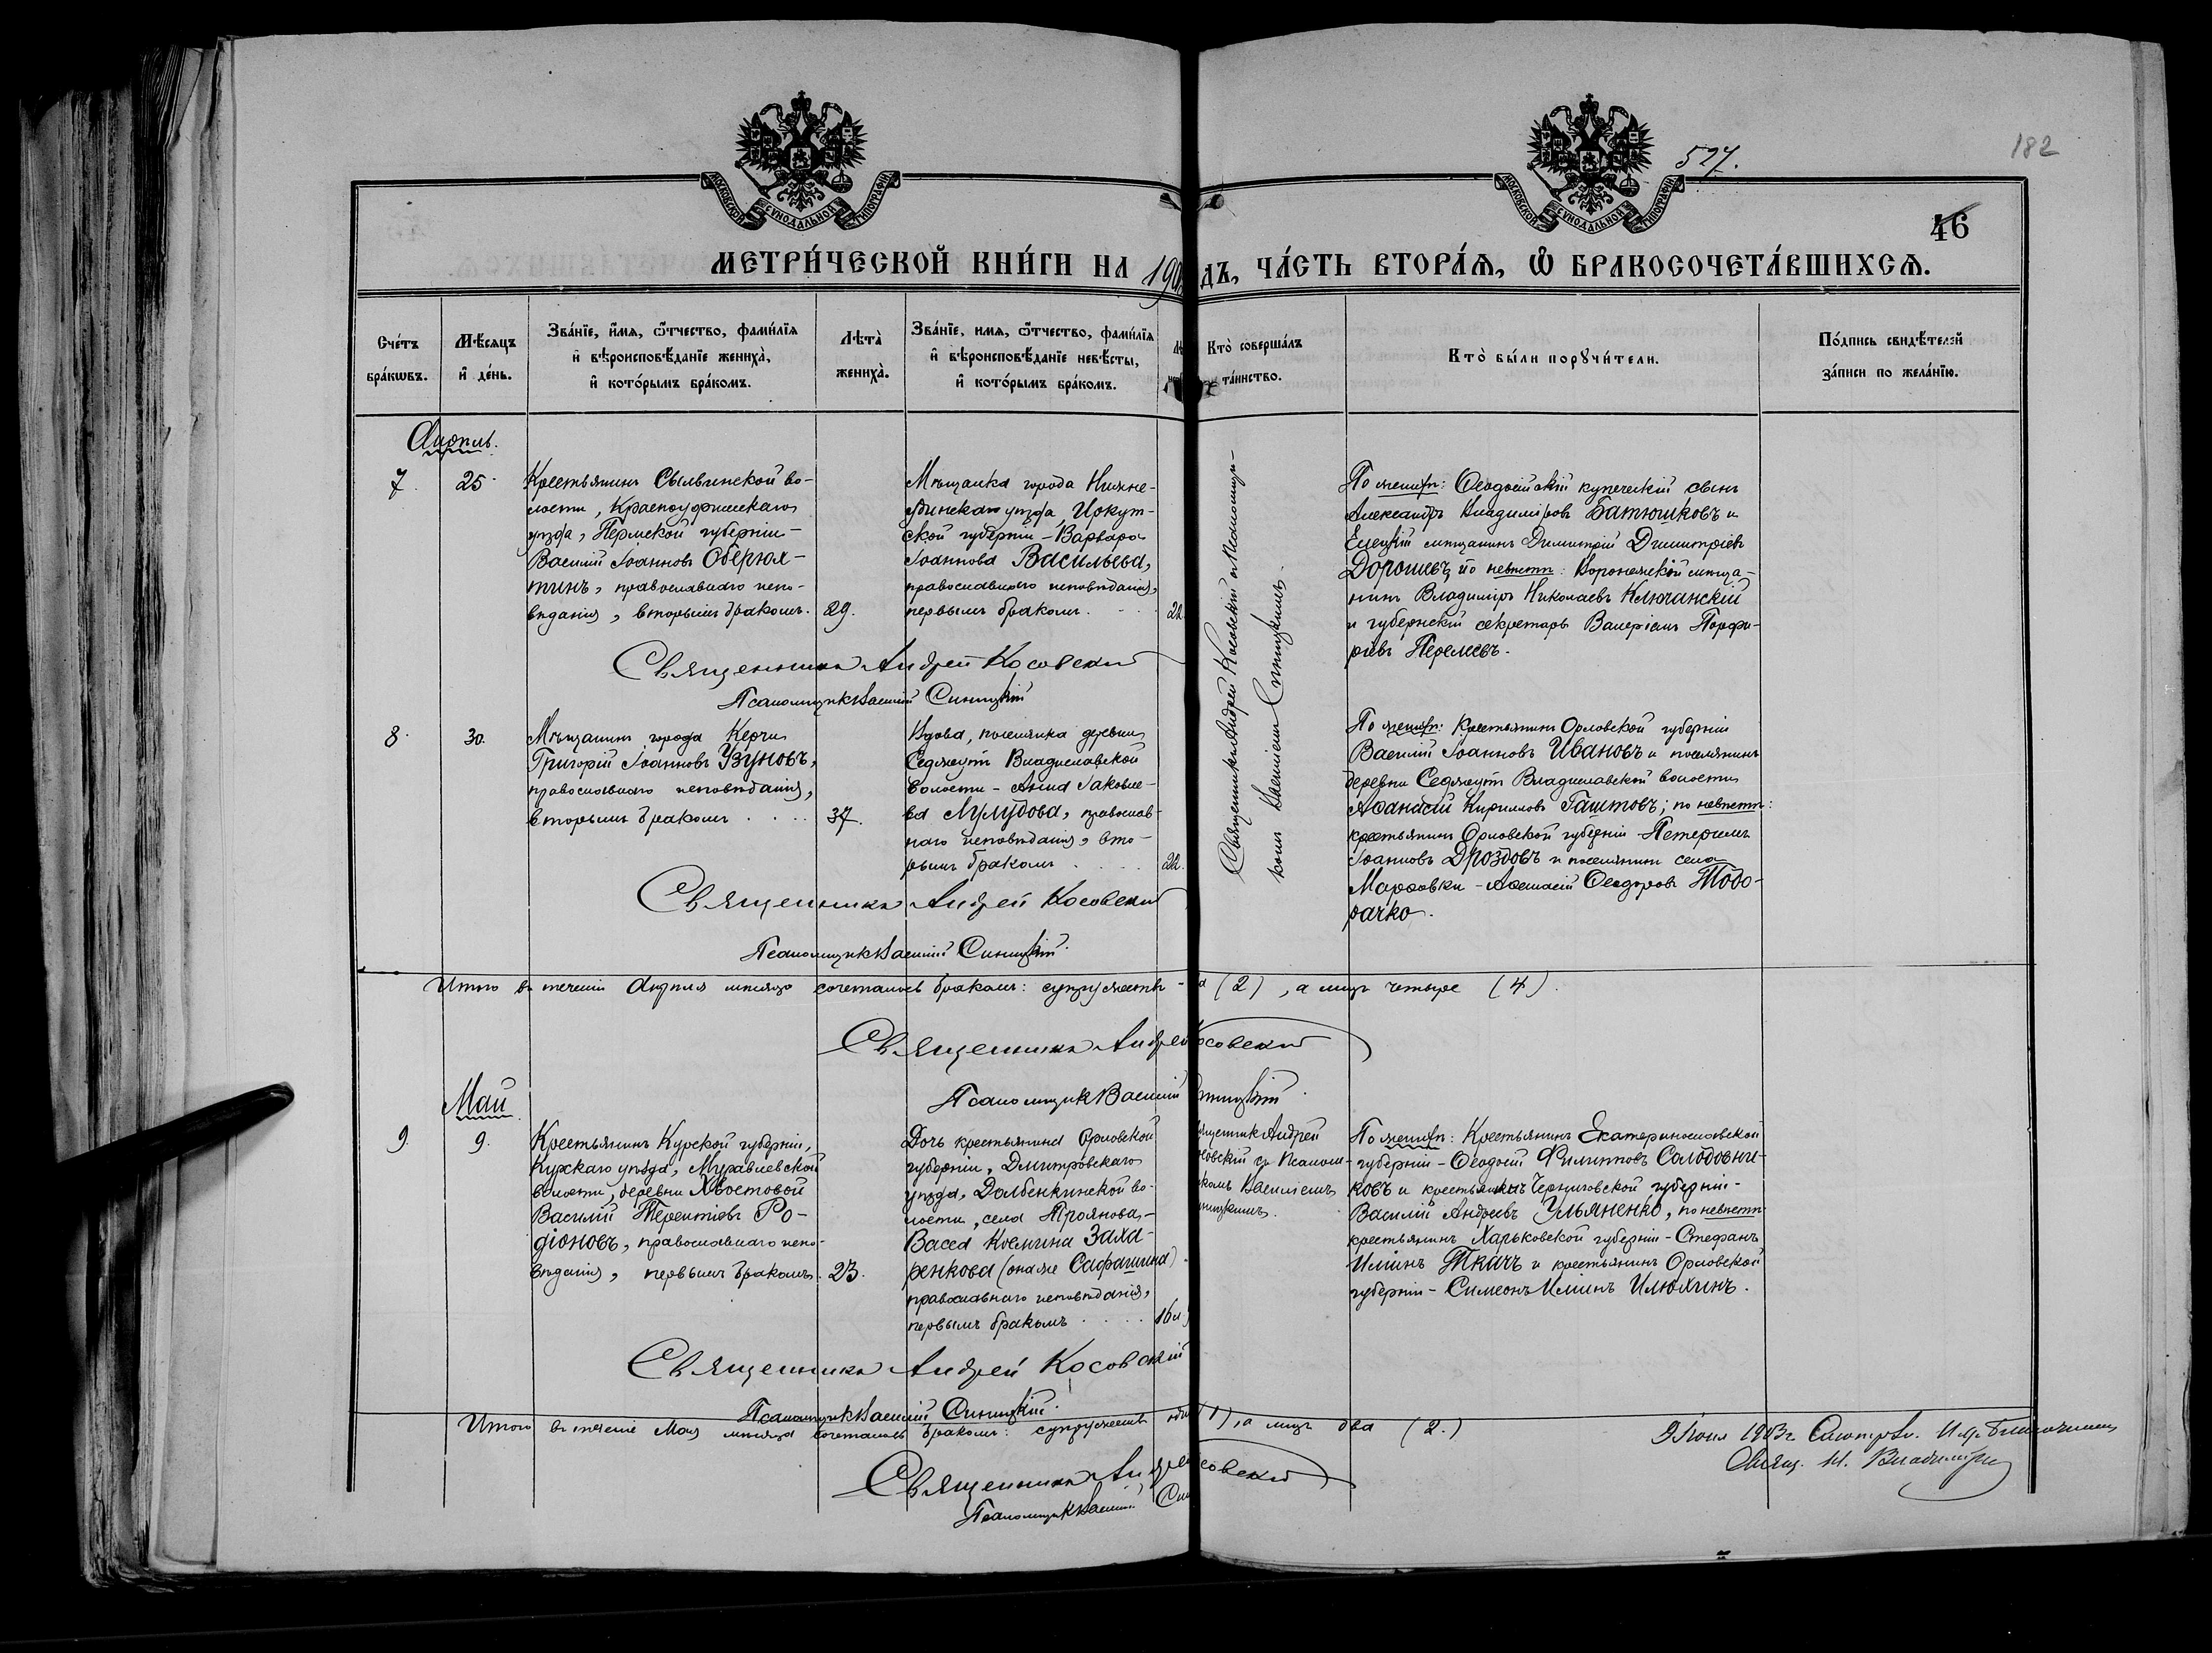 527.
182
МОСКОВСКОЙ СѴНОДАЛЬНОЙ ТИПОГРАФІИ
МОСКОВСКОЙ СѴНОДАЛЬНОЙ ТИПОГРАФІИ
46
МЕТРИ́ЧЕСКОЙ КНИ́ГИ НА 190
ДЪ, ЧА́СТЬ ВТОРА́Ѧ, Ѽ БРАКОСОЧЕТА́ВШИХСѦ.
Сче́тъ
бра́кѡвъ.
Мѣ́сѧцъ
и҆ де́нь.
Зва́нїе, и҆́мѧ, ѻ҆́тчество, фами́лїѧ
и҆ вѣроисповѣ́данїе жениха̀,
и҆ кото́рымъ бра́комъ.
Лѣта̀
жениха̀.
Зва́нїе, имѧ, ѻ҆́тчество, фами́лїѧ
и҆ вѣроисповѣ́данїе невѣ́сты,
и҆ кото́рымъ бра́комъ.
Кто̀ соверша́лъ
та́инство.
Кто̀ бы́ли порꙋчи́тели.
По́дпись свидѣ́телей
за́писи по жела́нїю.
Апрѣль.
7. 25.
Крестьянинъ Сылвинской во-
лости, Красноуфимскаго
уѣзда, Пермской губерніи -
Василій Іоанновъ Оберюх-
тинъ, православнаго испо-
вѣданія, вторымъ бракомъ. 29.
Мѣщанка города Нижне-
удинскаго уѣзда, Иркут-
ской губерніи - Варвара
Іоаннова Васильева,
православнаго исповѣданія,
первымъ бракомъ. 22.
Священникъ Андрей Косовскій и Псаломщи-
комъ Василіемъ Синицкимъ.
По женихѣ: Ѳеодосійскій купеческій сынъ
Александръ Владиміровъ Батюшковъ и
Елецкій мѣщанинъ Димитрій Димитріевъ
Дорошевъ, по невѣстѣ: Воронежскій мѣща-
нинъ Владиміръ Николаевъ Ключанскій
и губернскій секретарь Валеріанъ Порфи-
ріевъ Перелевъ.
Священникъ Андрей Косовскій
Псаломщикъ Василій Синицкій
8. 30.
Мѣщанинъ города Керчи
Григорій Іоанновъ Узуновъ,
православнаго исповѣданія,
вторымъ бракомъ 37.
Вдова, поселянка деревни
Седжеутъ Владиславской
волости - Анна Іаковле-
ва Лулудова, православ-
наго исповѣданія, вто-
рымъ бракомъ 22.
По женихѣ: Крестьянинъ Орловской губерніи
Василій Іоанновъ Ивановъ и поселянинъ
деревни Седжеутъ Владиславской волости
Аѳанасій Кирилловъ Гаштовъ; по невѣстѣ:
крестьянинъ Орловской губерніи - Петеримъ
Іоанновъ Дроздовъ и поселянинъ села
Марѳовки - Алексій Ѳеодоровъ Тодо-
рачко.
Священникъ Андрей Косовскій
Псаломщикъ Василій Синицкій.
Итого въ теченіи Апрѣля мѣсяца сочеталось бракомъ: супружествъ - а (2), а лицъ четыре (4).
Священникъ Андрей осовскій
Псаломщикъ Василій иницкій.
Май
9. 9.
Крестьянинъ Курской губерніи,
Курскаго уѣзда, Муравлевской
волости, деревни Хвостовой
Василій Терентіевъ Ро-
діоновъ, православнаго испо-
вѣданія, первымъ бракомъ. 23.
Дочь крестьянина Орловской
губерніи, Дмитровскаго
уѣзда, Долбенкинской во-
лости, села Троянова, -
Васса Космина Заха-
ренкова (она же Сафашина)
православнаго исповѣданія,
первымъ бракомъ 16 л
щенникъ Андрей
совскій съ Псалом-
комъ Василіемъ
ницкимъ.
По женихѣ: Крестьянинъ Екатеринославской
губерніи - Ѳеодосій Филипповъ Солодовни-
ковъ и крестьянинъ Черниговской губерніи -
Василій Андреевъ Ульяненко, по невѣстѣ
крестьянинъ Харьковской губерніи - Стефанъ
Иліинъ Ткачъ и крестьянинъ Орловской
губерніи - Симеонъ Иліинъ Илюхинъ.
Священникъ Андрей Косовскій
Псаломщикъ Василій Синицкій.
Итого въ теченіе Мая мѣсяца сочеталось бракомъ: супружествъ (1), а лицъ два (2.)
Священникъ Андрей совскій
Псаломщикъ Василій Син
9 Іюня 1903 г. Смотрѣлъ. И.д. Благочиннаго
Свящ. Н. Владиміръ